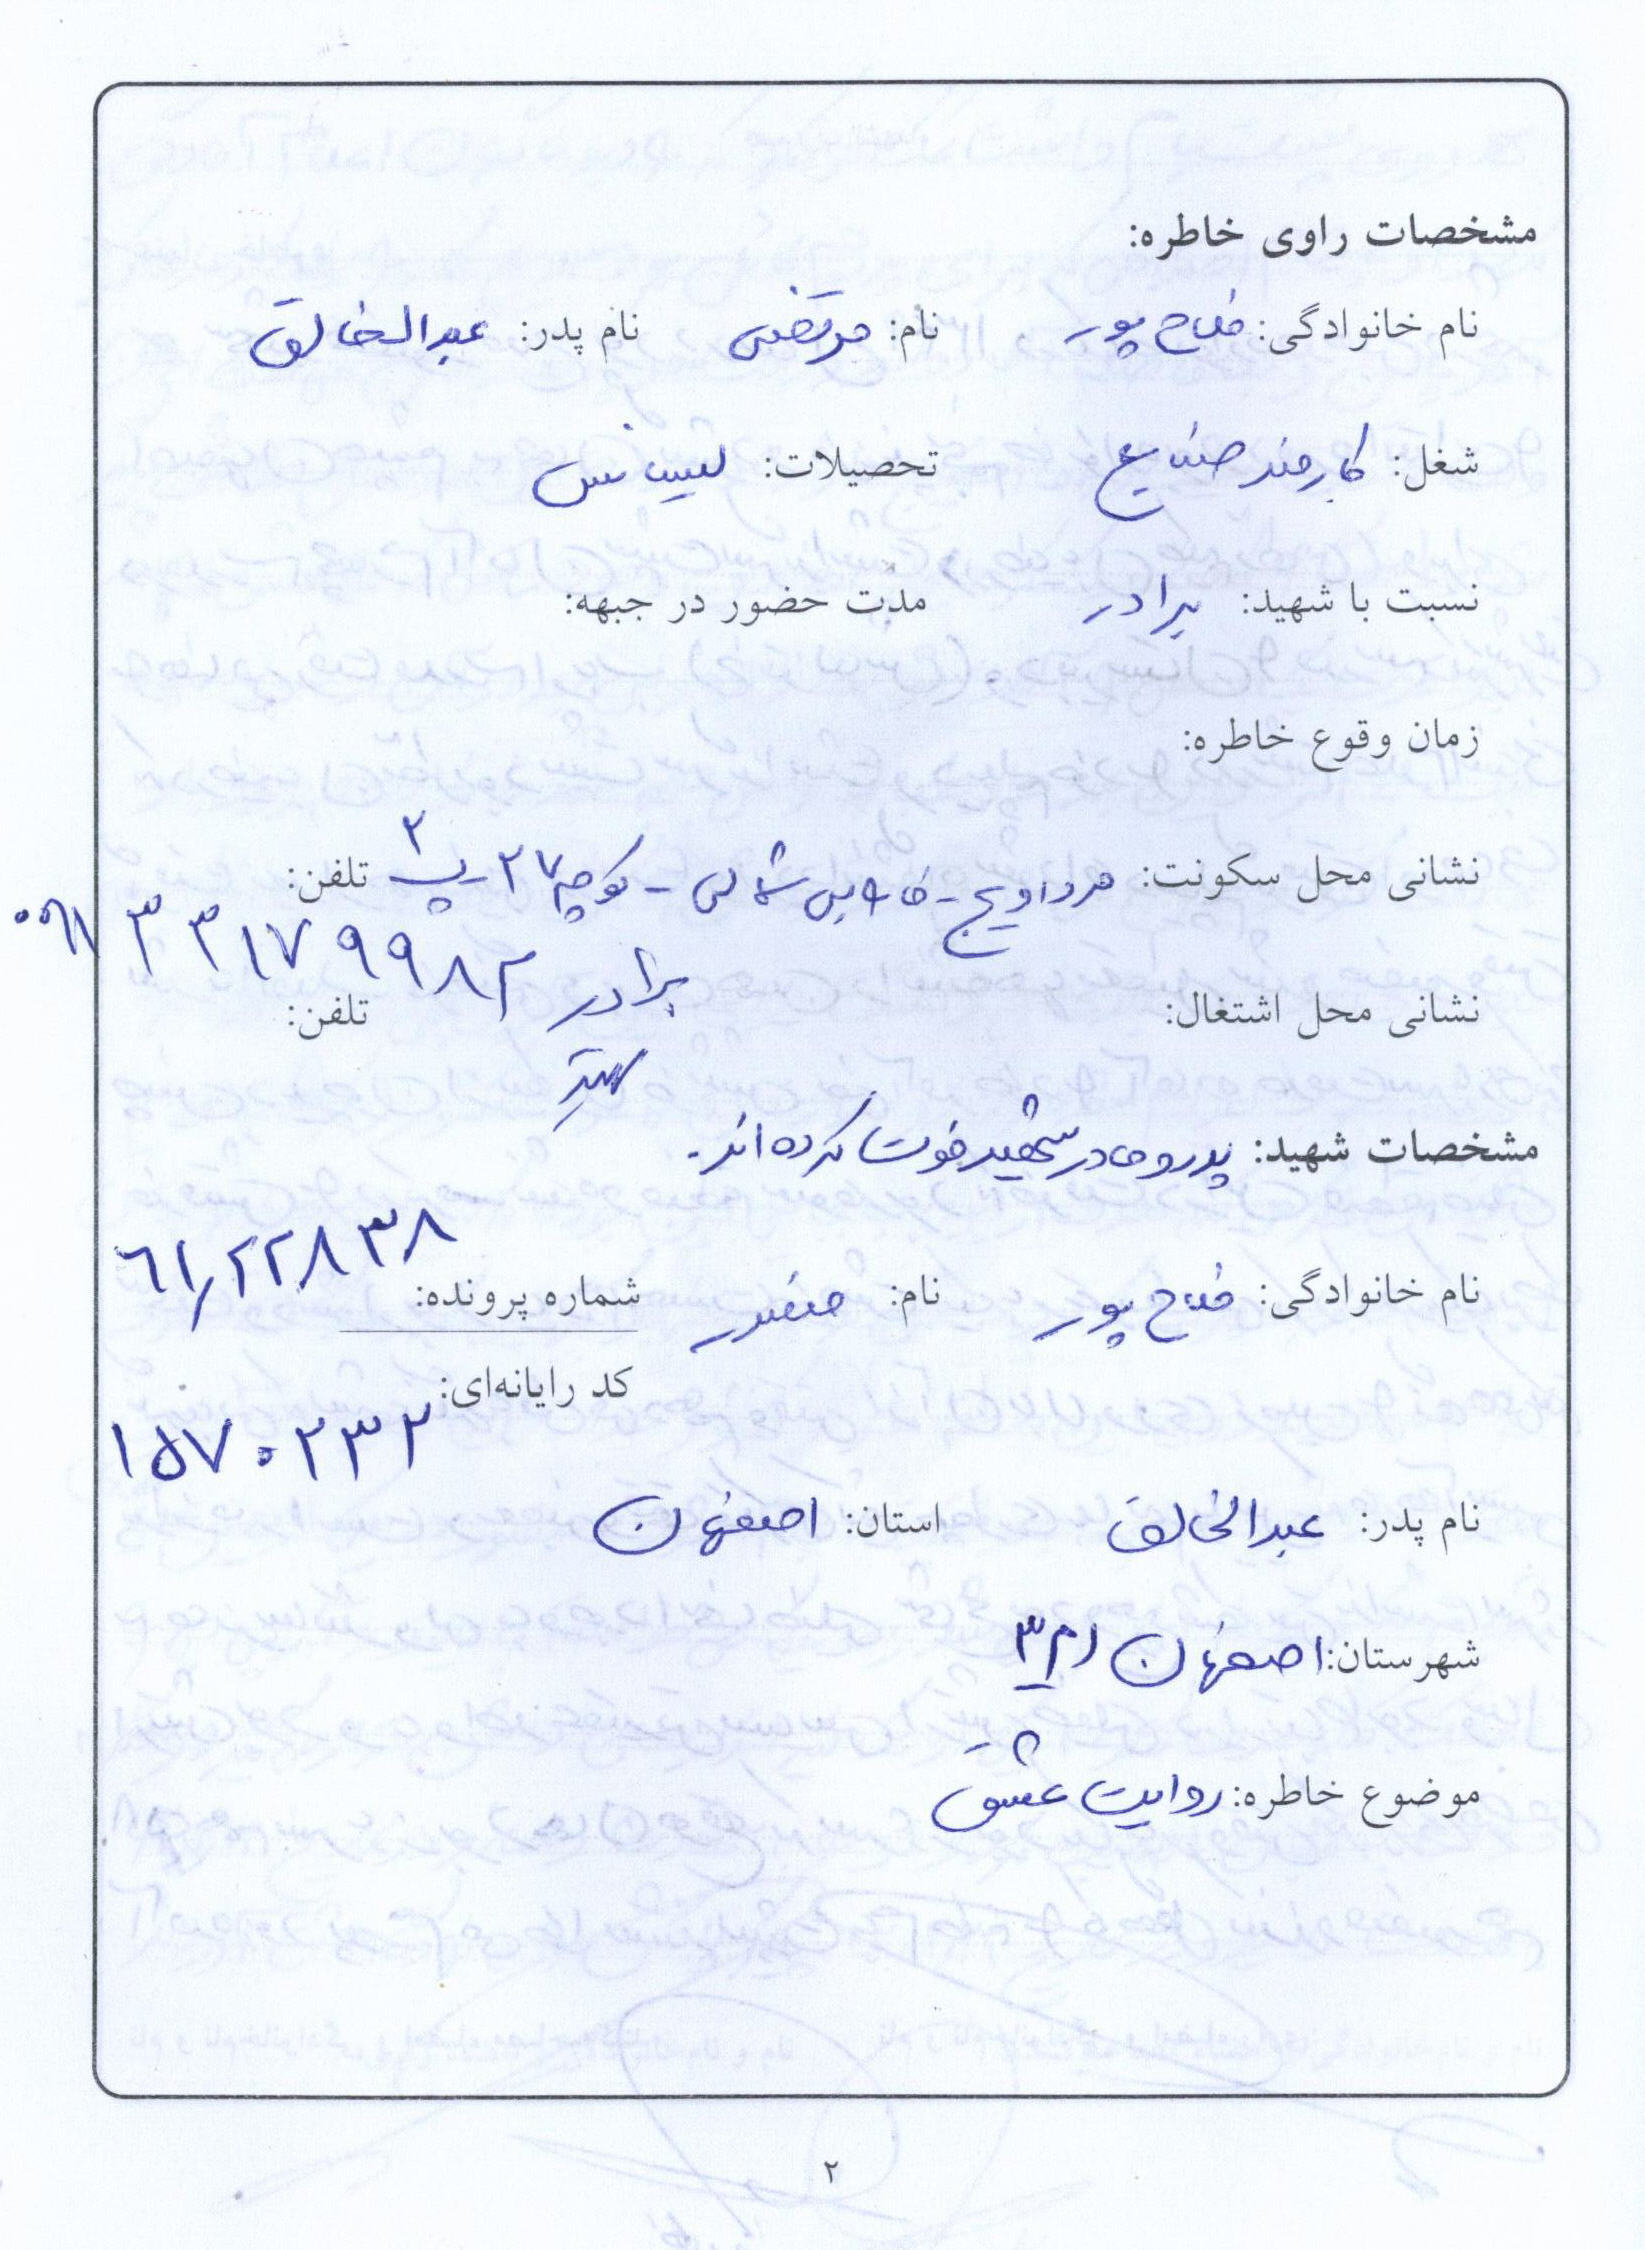 مشخصات راوی خاطره:
نام خانوادگی: فلاح پور نام: مرتضی نام پدر: عبدالخالق
شغل: کارمند صنایع تحصیلات: لیسانس
نسبت با شهید: برادر مدت حضور در جبهه:
زمان وقوع خاطره:
نشانی محل سکونت: مرداویج - شمالی - کوچه ۲۷ - پ ۲ تلفن:
۳۳۱۷۹۹۸۲ برادر
نشانی محل اشتغال: تلفن:
شهید
مشخصات شهید: پدر و مادر شهید فوت کرده اند.
نام خانوادگی: فلاح پور نام: صفدر شماره پرونده: ۶۱/۲۲۸۳۸
کد رایانه‌ای: ۱۵۷۰۲۳۲
نام پدر: عبدالخالق استان: اصفهان
شهرستان: اصفهان
موضوع خاطره: روایت عشق
۲